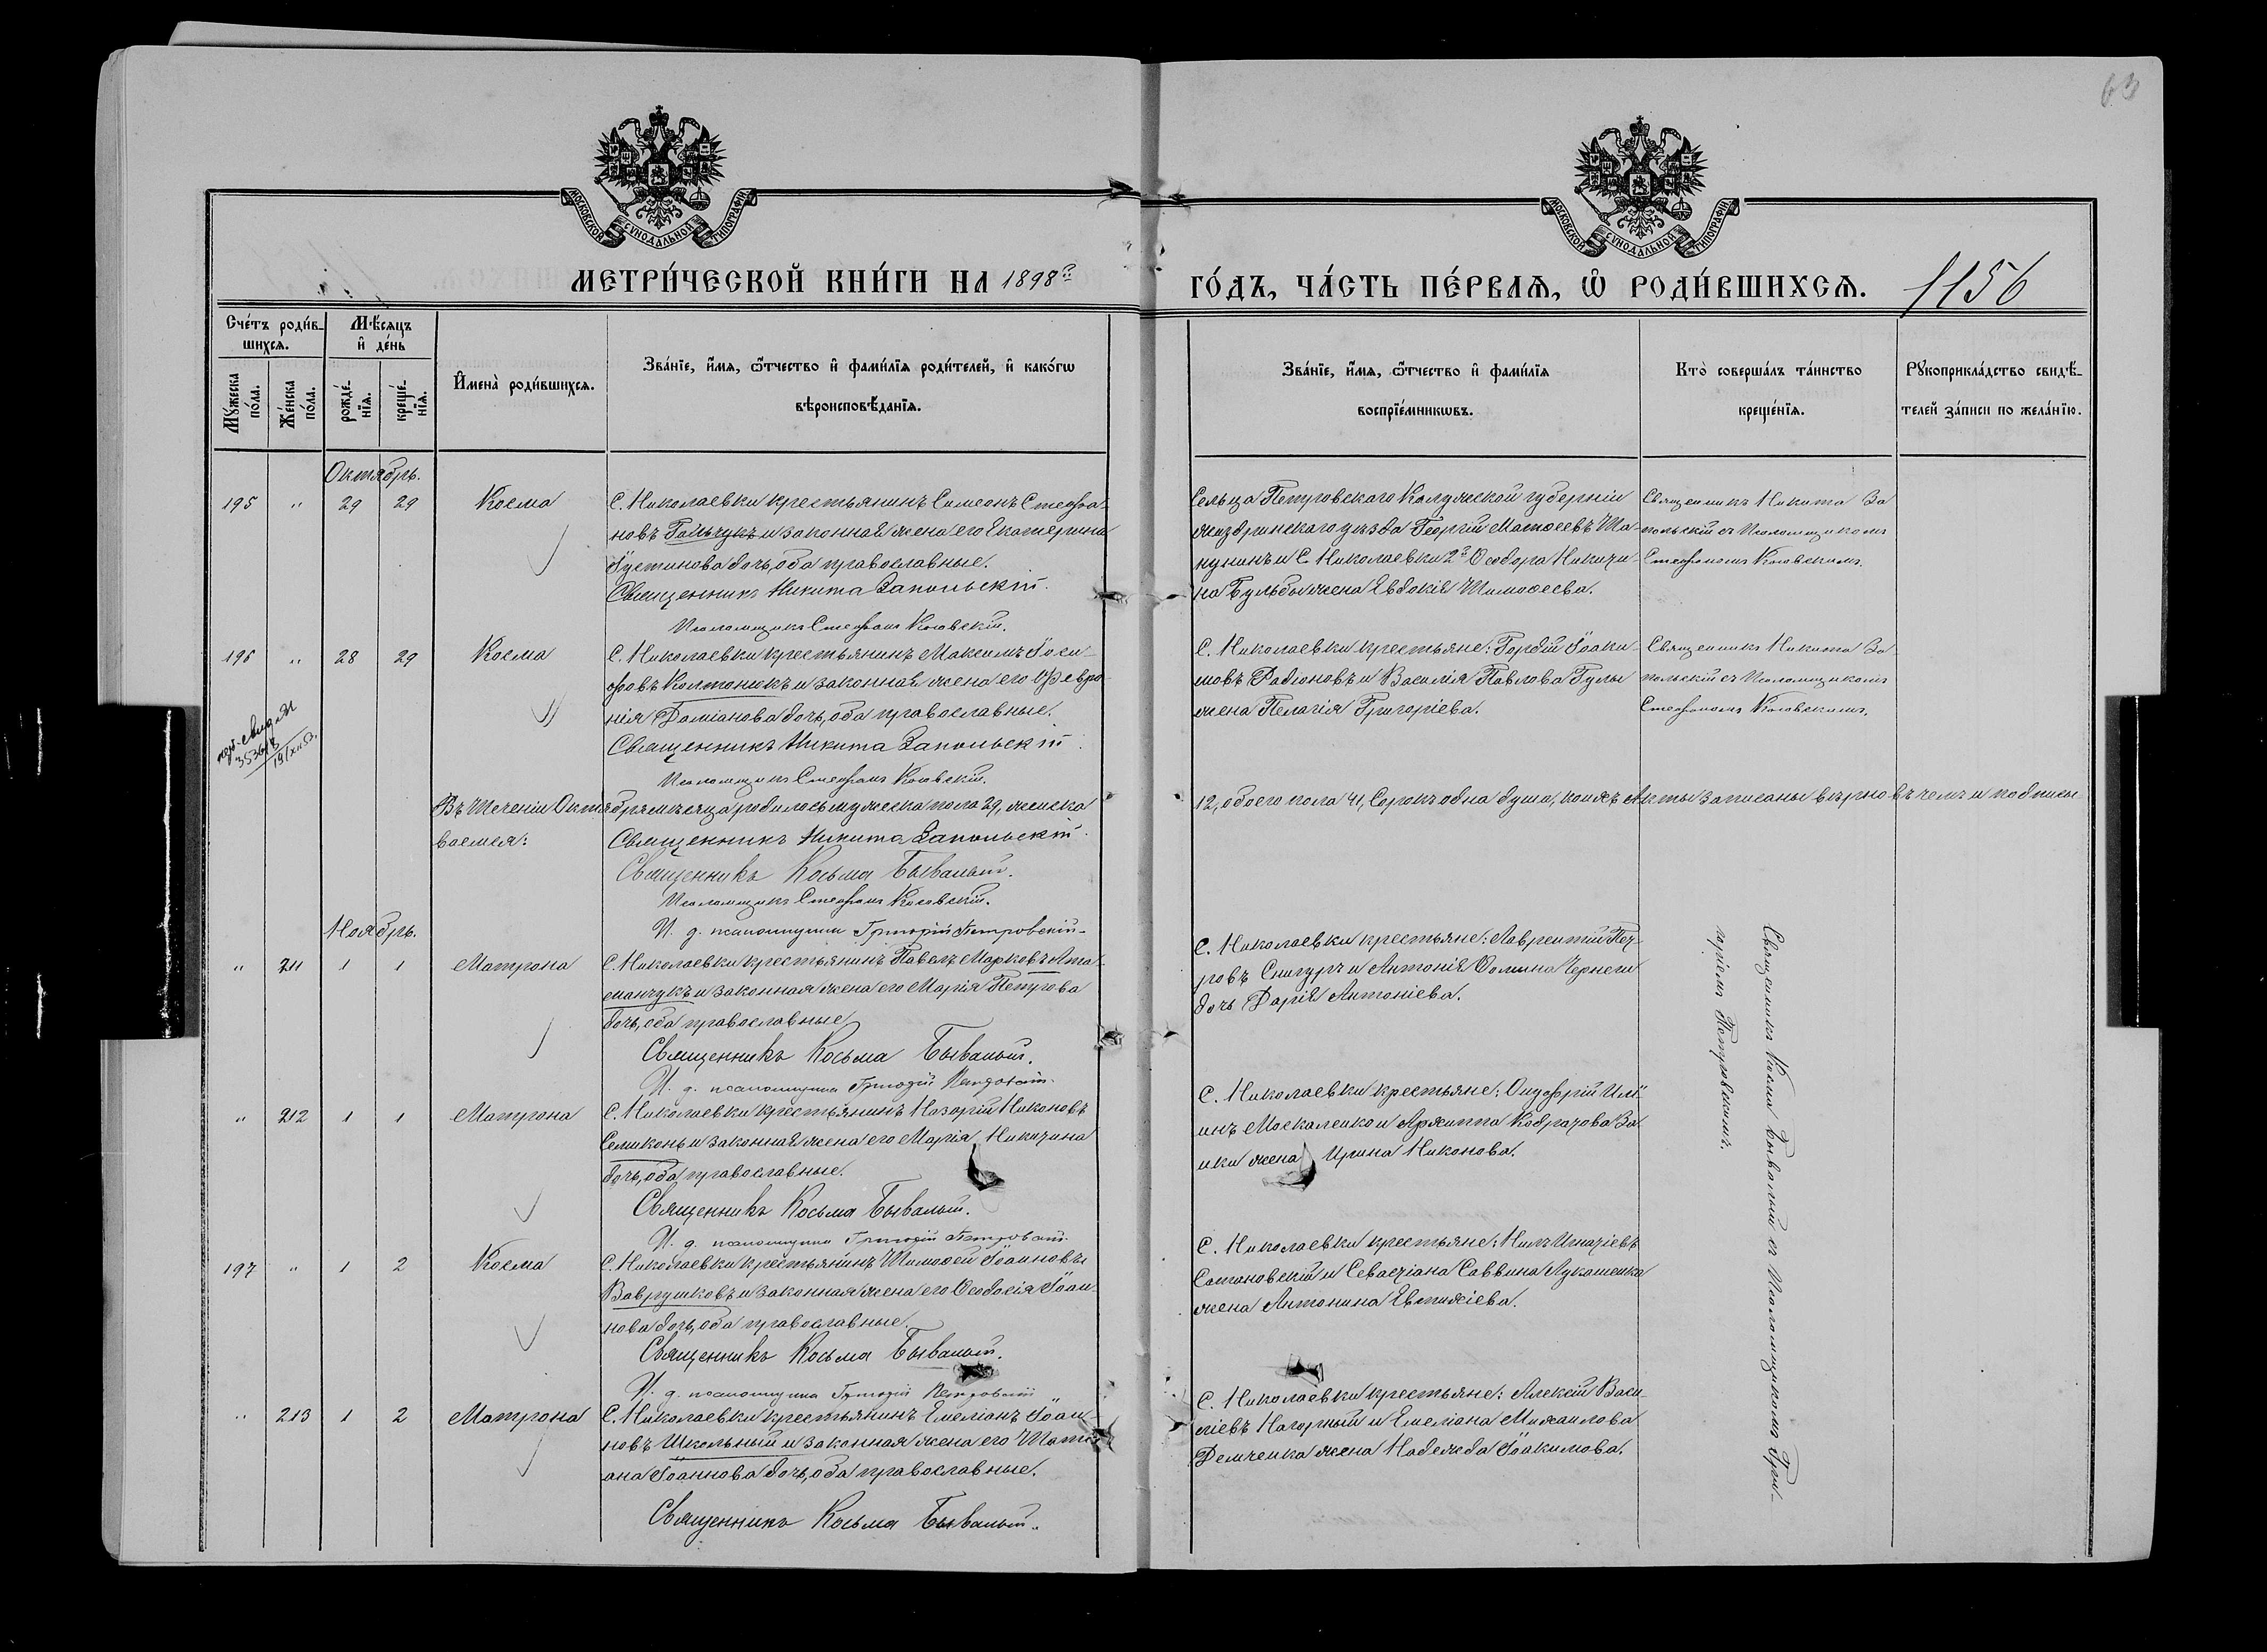 63
МОСКОВСКОЙ СѴНОДАЛЬНОЙ ТИПОГРАФІИ
МОСКОВСКОЙ СѴНОДАЛЬНОЙ ТИПОГРАФІИ
МЕТРИ́ЧЕСКОЙ КНИ́ГИ НА 1898й
ГО́ДЪ, ЧА́СТЬ ПЕ́РВАѦ, Ѡ РОДИ́ВШИХСѦ.
1156
Сче́тъ роди́в-
шихсѧ.
Мѣ́сѧцъ
и де́нь
Мꙋ́жеска по́ла.
Же́нска по́ла.
рожде́-
нїѧ.
креще́-
нїѧ.
Имена̀ роди́вшихсѧ.
Зва́нїе, и́мѧ, ѻ́тчество и фами́лїѧ роди́телей, и како́гѡ
вѣроисповѣ́данїѧ.
Зва́нїе, и́мѧ, ѻ́тчество и фами́лїѧ
воспрїе́мникѡвъ.
Кто̀ соверша́лъ та́инство
креще́нїѧ.
Рꙋкоприкла́дство свидѣ́-
телей за́писи по жела́нїю.
Октябрь.
195 " 29 29 Косма
С. Николаевки крестьянинъ Симеонъ Стефа-
новъ Гальчукъ и законная жена его Екатерина
Іустинова дочь, оба православные.
Священникъ Никита Запольскій.
Псаломщикъ Стефанъ Косовскій.
Сельца Петровскаго Калужской губерніи
Жиздринскаго уѣзда Георгій Матѳеевъ Ша-
нунинъ и С. Николаевки 2й Ѳеодора Никити-
на Бульбы жена Евдокія Тимоѳеева.
Священникъ Никита За
польскій съ Псаломщикомъ
Стефаномъ Косовскимъ.
196 " 28 29 Косма
С. Николаевки крестьянинъ Максимъ Іоси-
фовъ Колтонюкъ и законная жена его Февро-
нія Даміанова дочь, оба православные.
Священникъ Никита Запольскій.
Псаломщикъ Стефанъ Косовскій.
С. Николаевки крестьяне: Гордій Іоаки-
мовъ Радіоновъ и Василія Павлова Гулы
жена Пелагія Григоріева.
Священникъ Никита За-
польскій съ Псаломщикомъ
Стефаномъ Косовскимъ.
Въ теченіи Октября мѣсяца родилось мужеска пола 29, женска
12, обоего пола 41, Сорокъ одна душа, коихъ Акты записаны вѣрно въ чемъ и подписы
ваемся:
Священникъ Никита Запольскій.
Священникъ Косьма Бывалый.
Псаломщикъ Стефанъ Косовскій.
И. д. псаломщика Григорій Петровскій
Ноябрь.
" 211 1 1 Матрона
С. Николаевки крестьянинъ Павелъ Марковъ Ата-
манчукъ и законная жена его Марія Петрова
дочь, оба православные
Священникъ Косьма Бывалый.
И. д. псаломщика Григорій Петровскій
С. Николаевки крестьяне: Лаврентій Пет-
ровъ Снигуръ и Антонія Ѳомина Чернеги
дочь Дарія Антоніева.
Священникъ Косма Бывалый съ Псаломщикомъ Гри-
горіемъ Петровскимъ.
" 212 1 1 Матрона
С. Николаевки крестьянинъ Назарій Никоновъ
Семиконь и законная жена его Марія Никитина
дочь, оба православные.
Священникъ Косьма Бывалый.
И. д. псаломщика Григорій Петровскій
С. Николаевки крестьяне: Онуфрій Иль-
инъ Москаленко и Архиппа Кодратова За
ики жена Ирина Никонова.
197 " 1 2 Косма
С. Николаевки крестьянинъ Тимоѳей Іоанновъ
Ваврушковъ и законная жена его Ѳеодосія Іоан-
нова дочь, оба православные.
Священникъ Косьма Бывалый.
И. д. псаломщика Григорій Петровскій
С. Николаевки крестьяне: Нилъ Игнатіевъ
Сатановскій и Севастіана Саввина Лукашенка
жена Антонина Евтихіева.
" 213 1 2 Матрона
С. Николаевки крестьянинъ Емеліанъ Іоан-
новъ Школьный и законная жена его Тати-
ана Іоаннова дочь, оба православные.
Священникъ Косьма Бывалый.
С. Николаевки крестьяне: Алексій Васи-
ліевъ Нагорный и Емеліана Михаилова
Демченка жена Надежда Іоакимова.